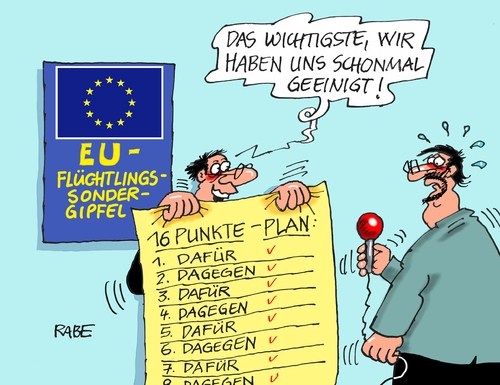 DAS WICHTIGSTE, WIR
HABEN UNS SCHONMAL
GEEINIGT!
EU-
FLÜCHTLINGS-
SONDER-
GIPFEL
16 PUNKTE-PLAN:
1. DAFÜR ✓
2. DAGEGEN ✓
3. DAFÜR ✓
4. DAGEGEN ✓
5. DAFÜR ✓
6. DAGEGEN ✓
7. DAFÜR ✓
8. DAGEGEN ✓
RABE